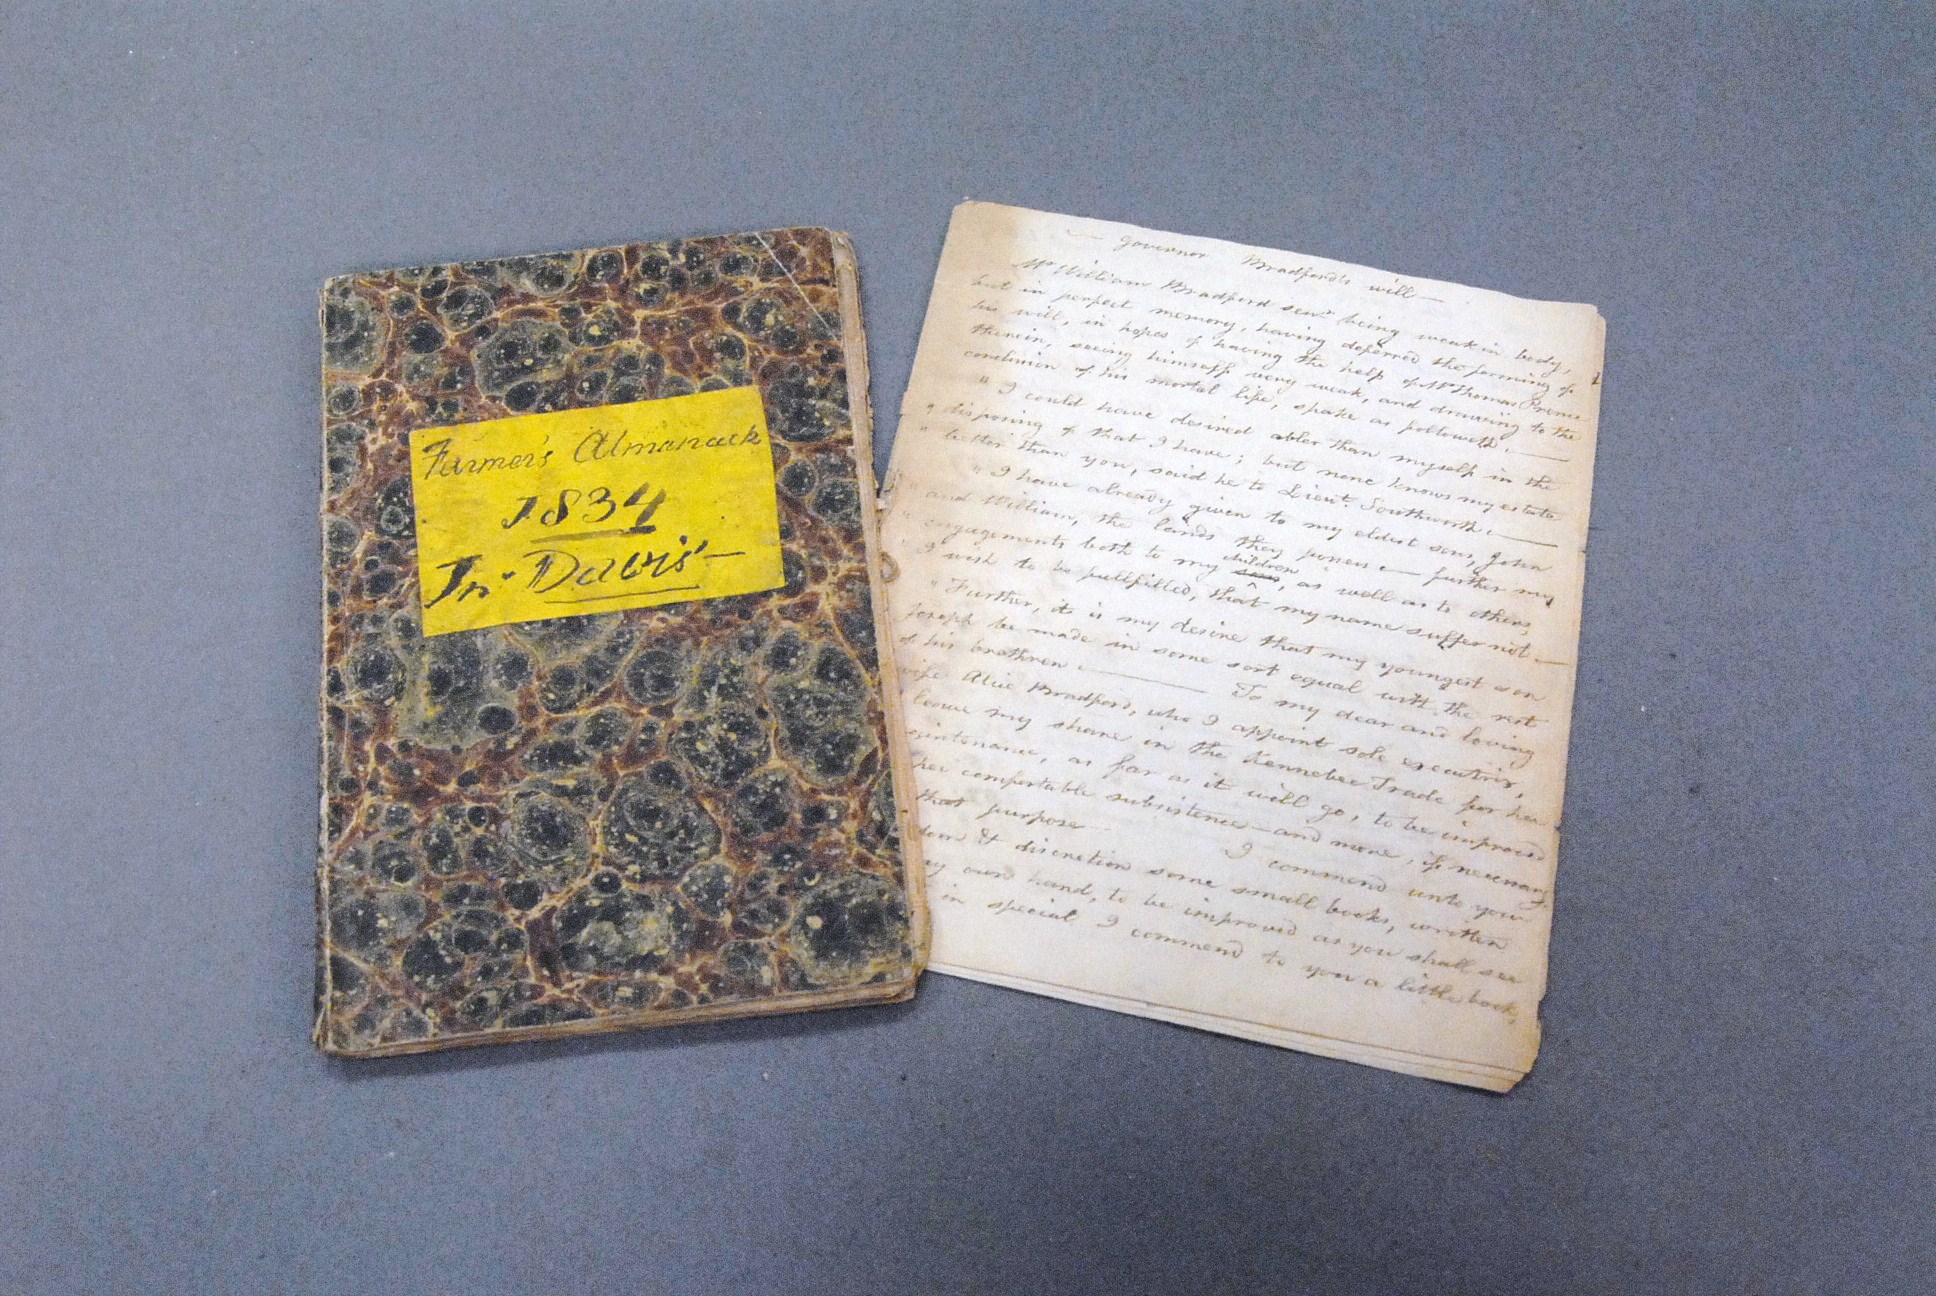 Farmer's Almanack
1834
Jn. Davis
Governor Bradford's will
Mr William Bradford senr being weak in body,
but in perfect memory, having deferred the forming of
his will, in hopes of having the help of Mr Thomas Prence
therein, seeing himself very weak, and drawing to the
conclusion of his mortal life, spake as followeth.
" I could have desired abler than myself in the
" disposing of that I have; but none knows my estate
" better than you, said he to Lieut. Southworth.
" I have already given to my eldest sons, John
" and William, the lands they possess. further my
" engagements both to my sons, children as well as to others,
" I wish to be fullfilled, that my name suffer not.
" Further, it is my desire that my youngest son
Joseph be made in some sort equal with the rest
of his brethren. To my dear and loving
wife Alice Bradford, who I appoint sole executrix,
leave my share in the Kennebec Trade for her
maintenance, as far as it will go, to be improved
her comfortable subsistence—and more, if necessary
that purpose. I commend unto your
dom & discretion some small books, written
my own hand, to be improved as you shall see
in special I commend to you a little book,